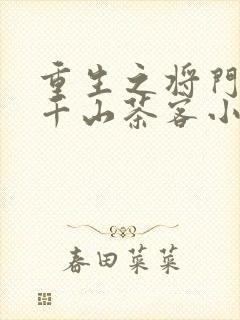 重生之将门
千山茶客小
春田菜菜